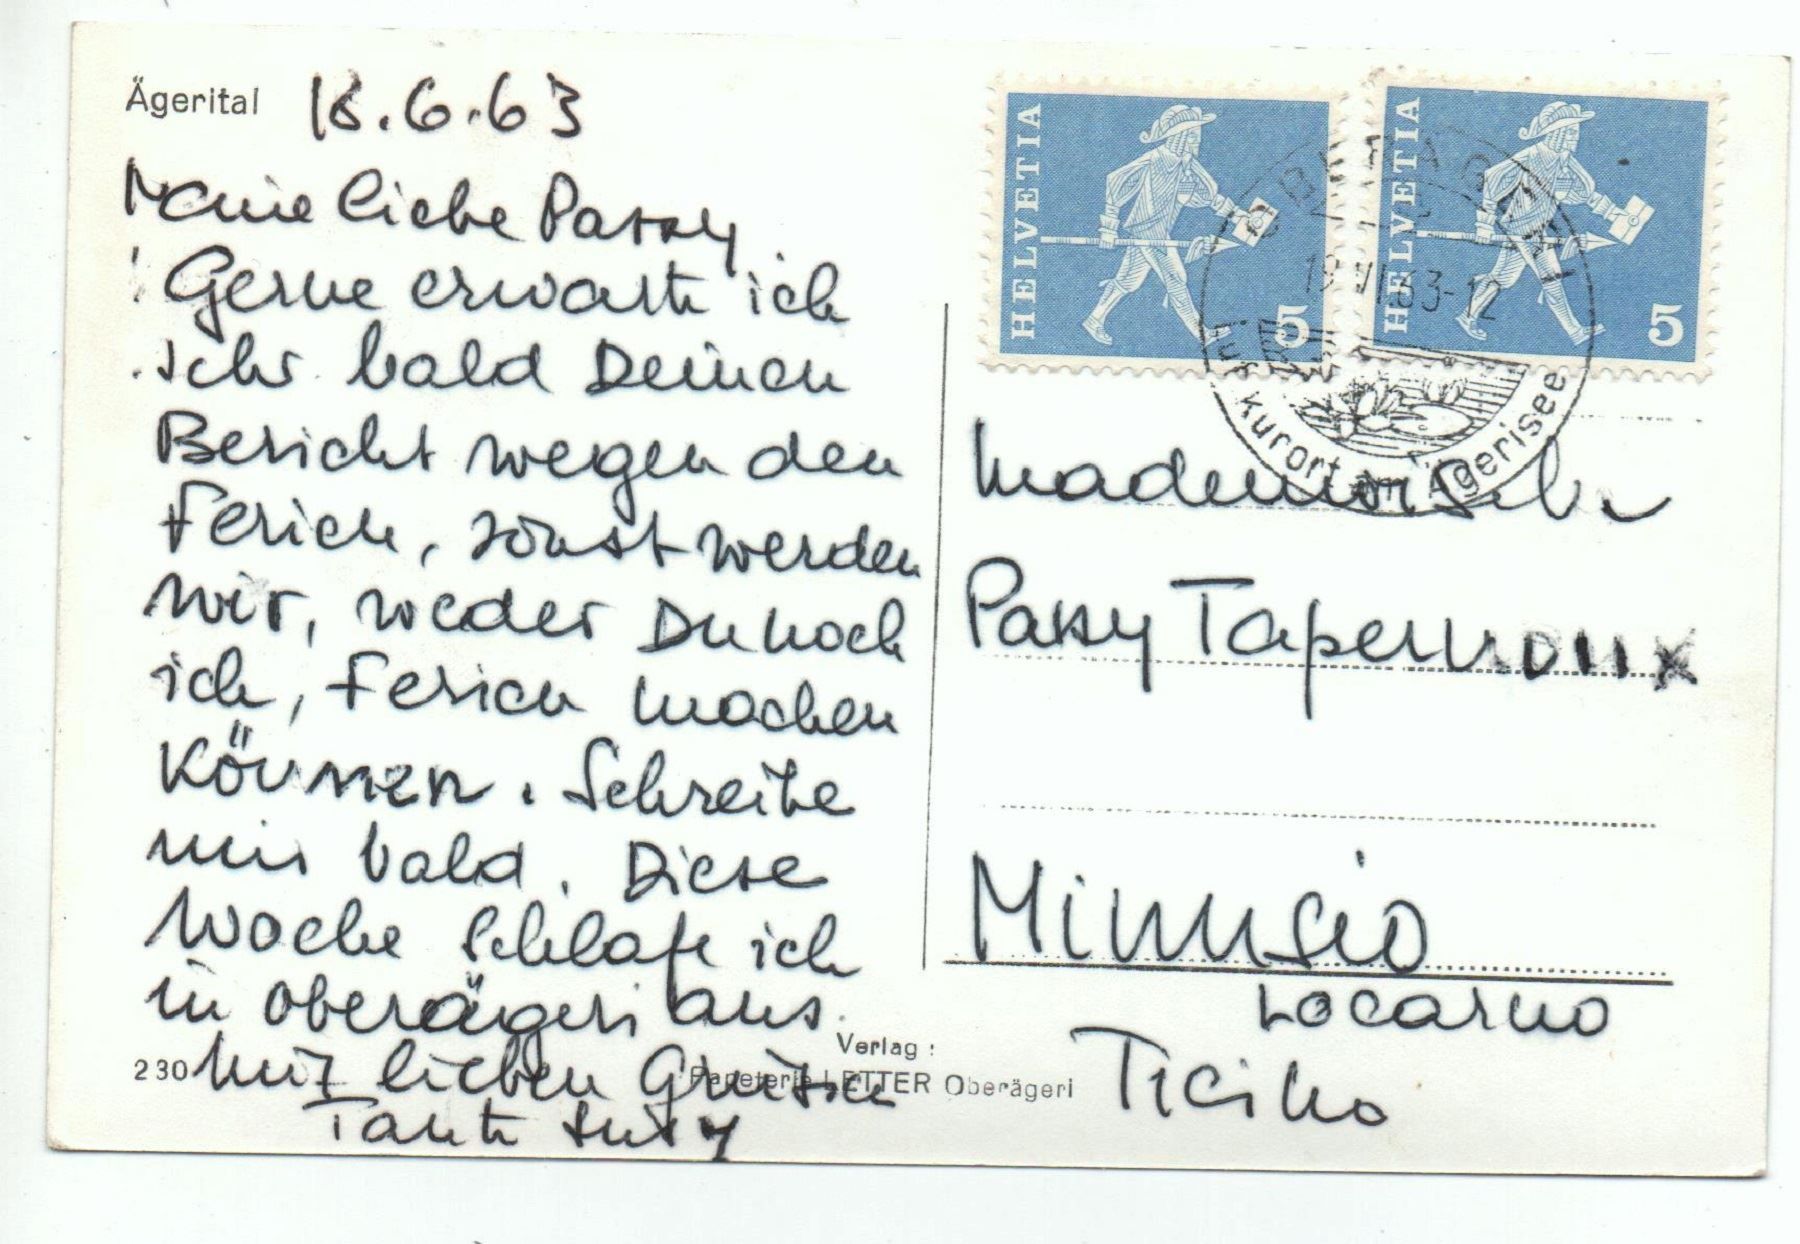 Ägerital 18.6.63
Meine liebe Passy
! Gerne erwarte ich
sehr bald Deinen
Bericht wegen den
Ferien, sonst werden
wir, weder Du noch
ich, Ferien machen
können. Schreibe
mir bald. Diese
Woche schlafe ich
in Oberägeri aus.
Mit lieben Grüssen
Tante Susy
230
Verlag :
Papeterie LETTER Oberägeri
HELVETIA 5
HELVETIA 5
OBERÄGERI
19.VI.63-12
kurort am Ägerisee
Mademoiselle
Passy Tapernoux
Minusio
Locarno
Ticino